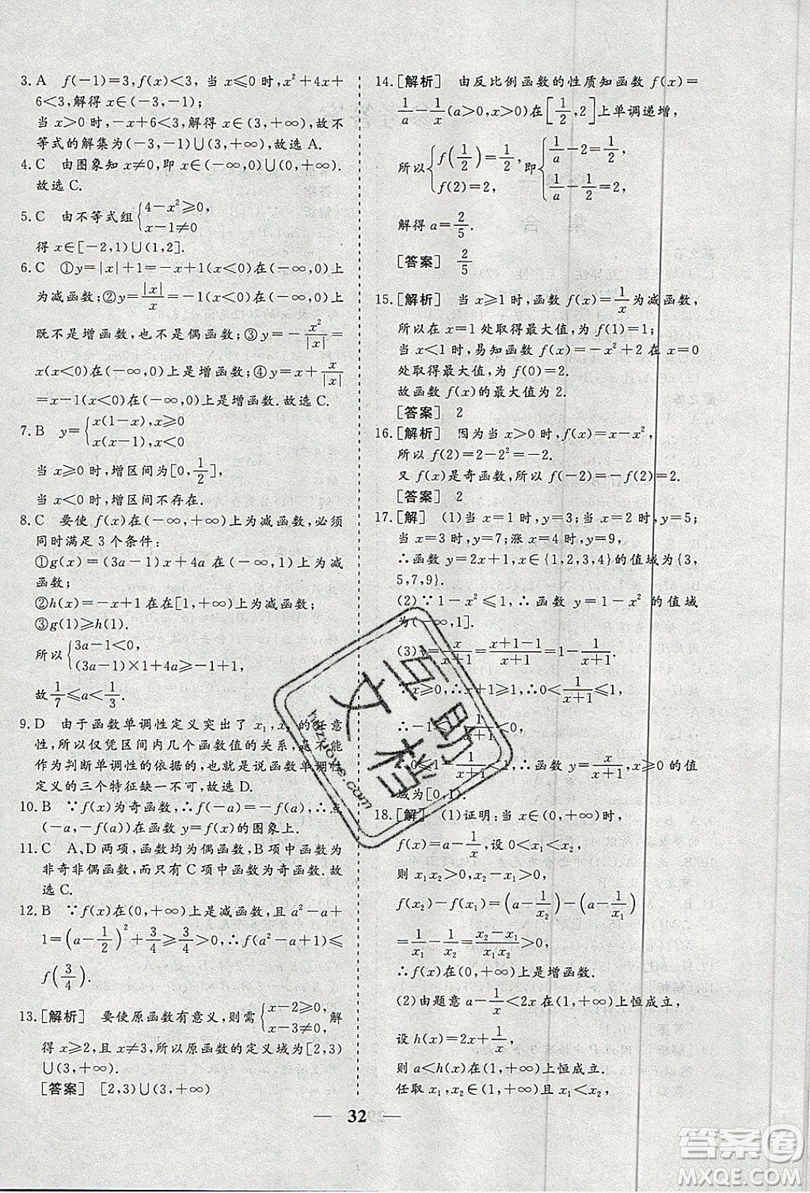 3. A　f(-1)=3,f(x)<3,当 x≤0 时,x²+4x+
6<3,解得 x∈(-3,-1);
当 x>0 时,-x+6<3,解得 x∈(3,+∞),故不
等式的解集为(-3,-1)∪(3,+∞),故选 A.
4. C　由图象知 x≠0,即 x∈(-∞,0)∪(0,+∞).
故选 C.
5. C　由不等式组{4-x²≥0, x-1≠0
得 x∈[-2,1)∪(1,2].
6. C　①y=|x|+1=-x+1(x<0)在(-∞,0)上
为减函数;②y=|x|/x=-1(x<0)在(-∞,0)上
既不是增函数,也不是偶函数;③y=-x²/|x|=
x(x<0)在(-∞,0)上是增函数;④y=x+x/|x|
=x-1(x<0)在(-∞,0)上是增函数.故选 C.
7. B　y={x(1-x),x≥0 x(x-1),x<0
当 x≥0 时,增区间为[0,1/2],
当 x<0 时,增区间不存在.
8. C　要使 f(x)在(-∞,+∞)上为减函数,必须
同时满足 3 个条件:
①g(x)=(3a-1)x+4a 在(-∞,1)上为减
函数;
②h(x)=-x+1 在[1,+∞)上为减函数;
③g(1)≥h(1).
所以{3a-1<0, (3a-1)×1+4a≥-1+1,
故 1/7≤a<1/3.
9. D　由于函数单调性定义突出了 x₁,x₂ 的任意
性,所以仅凭区间内几个函数值的关系,是不能
作为判断单调性的依据的,也就是说函数单调性
定义的三个特征缺一不可,故选 D.
10. B　∵f(x)为奇函数,∴f(-a)=-f(a),∴点
(-a,-f(a))在函数 y=f(x)的图象上.
11. C　A,D 两项,函数均为偶函数,B 项中函数为
非奇非偶函数,而只有 C 项中函数为奇函数,故
选 C.
12. B　∵f(x)在(0,+∞)上是减函数,且 a²-a+
1=(a-1/2)²+3/4≥3/4>0,∴f(a²-a+1)≤
f(3/4).
13. [解析]　要使原函数有意义,则需{x-2≥0, x-3≠0,解
得 x≥2,且 x≠3,所以原函数的定义域为[2,3)
∪(3,+∞).
[答案]　[2,3)∪(3,+∞)
14. [解析]　由反比例函数的性质知函数 f(x)=
1/a-1/x(a>0,x>0)在[1/2,2]上单调递增,
所以{f(1/2)=1/2, f(2)=2, 即{1/a-2=1/2, 1/a-1/2=2,
解得 a=2/5.
[答案]　2/5
15. [解析]　当 x≥1 时,函数 f(x)=1/x为减函数,
所以 f(x)在 x=1 处取得最大值,为 f(1)=1;
当 x<1 时,易知函数 f(x)=-x²+2 在 x=0
处取得最大值,为 f(0)=2.
故函数 f(x)的最大值为 2.
[答案]　2
16. [解析]　因为当 x>0 时,f(x)=x-x²,
所以 f(2)=2-2²=-2.
又 f(x)是奇函数,所以 f(-2)=-f(2)=2.
[答案]　2
17. [解]　(1)当 x=1 时,y=3;当 x=2 时,y=5;
当 x=3 时,y=7;当 x=4 时,y=9.
∴函数 y=2x+1,x∈{1,2,3,4}的值域为{3,
5,7,9}.
(2)∵1-x²≤1,∴函数 y=1-x² 的值域
为(-∞,1].
(3)y=x/(x+1)=(x+1-1)/(x+1)=1-1/(x+1).
∵x≥0,∴x+1≥1,∴0<1/(x+1)≤1,
∴-1≤-1/(x+1)<0,
∴0≤1-1/(x+1)<1,∴函数 y=x/(x+1),x≥0 的值
域为[0,1).
18. [解]　(1)证明:当 x∈(0,+∞)时,
f(x)=a-1/x,设 0<x₁<x₂,
则 x₁x₂>0,x₂-x₁>0,
f(x₂)-f(x₁)=(a-1/x₂)-(a-1/x₁)
=1/x₁-1/x₂=(x₂-x₁)/(x₁x₂)>0,
∴f(x)在(0,+∞)上是增函数.
(2)由题意 a-1/x<2x 在(1,+∞)上恒成立,
设 h(x)=2x+1/x,
则 a<h(x)在(1,+∞)上恒成立.
任取 x₁,x₂∈(1,+∞)且 x₁<x₂,
32
互助文档
hezuone.com
答案圈
MXQE.COM